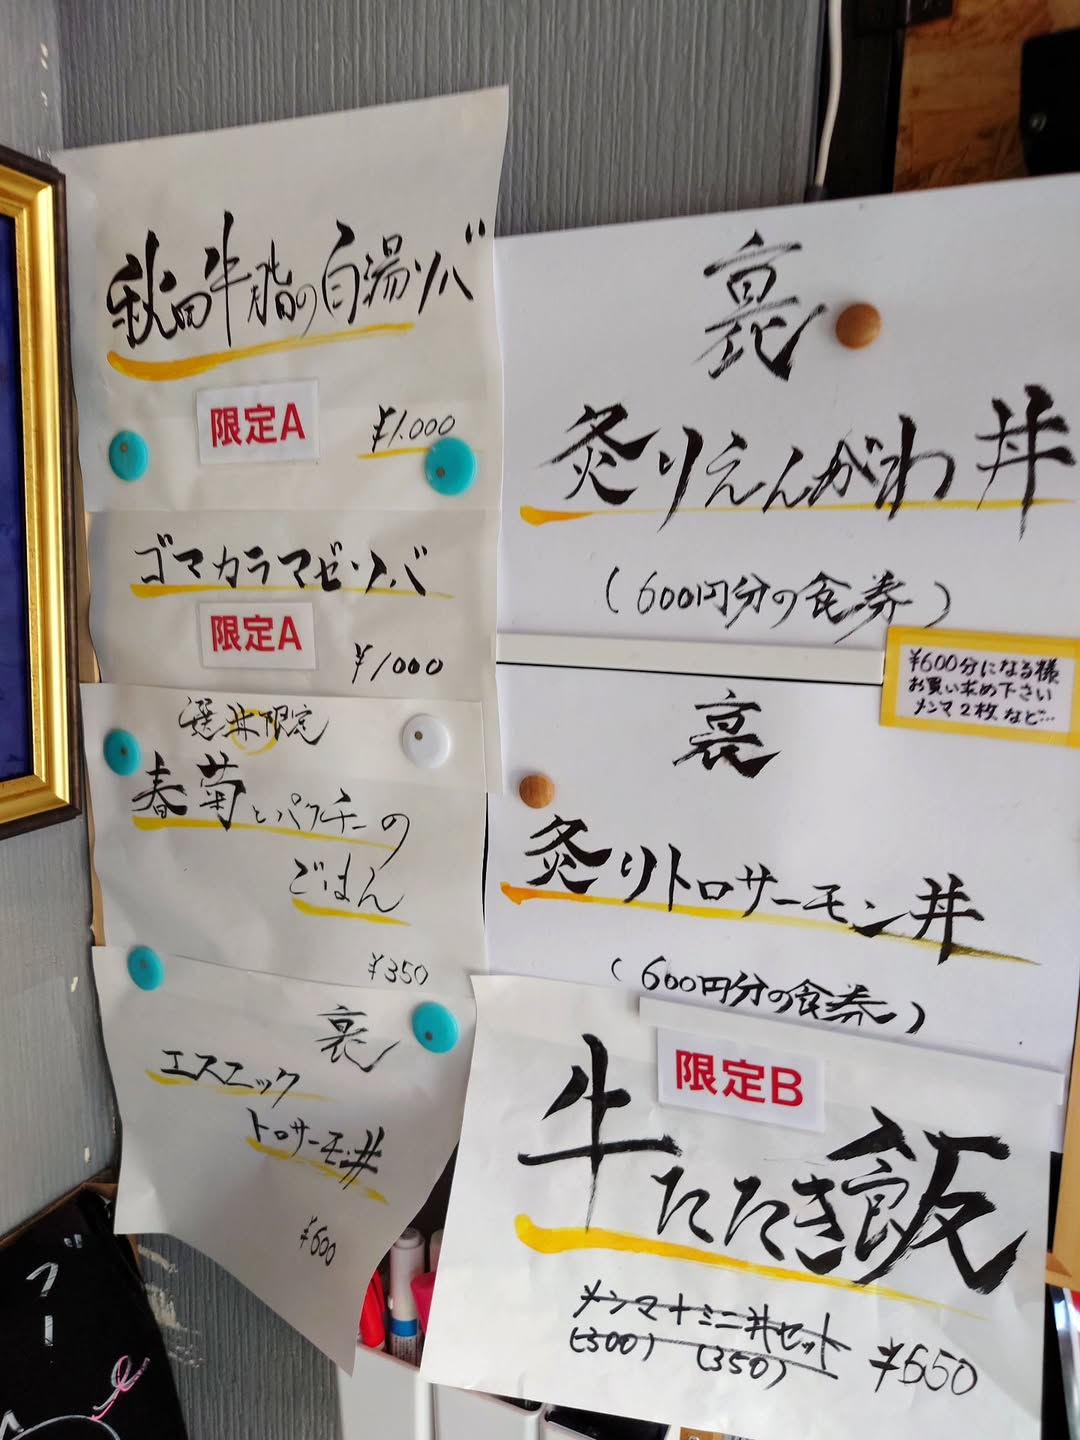 秋田牛脂の白湯ソバ
限定A
¥1.000
ゴマカラマゼソバ
限定A
¥1000
選丼限定
春菊とパクチーの
ごはん
¥350
裏
エスニック
トロサーモン丼
¥600
裏
炙りえんがわ丼
(600円分の食券)
¥600分になる様
お買い求め下さい
メンマ2枚など…
裏
炙りトロサーモン丼
(600円分の食券)
限定B
牛たたき飯
メンマ+ミニ丼セット
(300) (350)
¥650